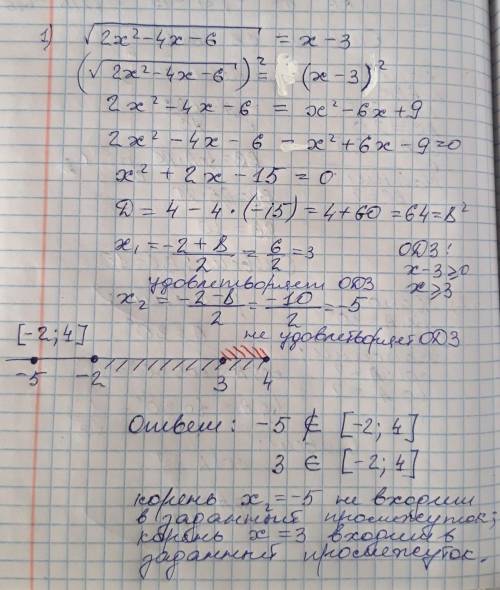 1) √(2x²-4x-6) = x-3
(√(2x²-4x-6))² = (x-3)²
2x²-4x-6 = x²-6x+9
2x²-4x-6-x²+6x-9=0
x²+2x-15=0
Д = 4-4·(-15)=4+60=64=8²
x₁ = (-2+8)/2 = 6/2 = 3
ОДЗ:
x-3≥0
x≥3
удовлетворяет ОДЗ
x₂ = (-2-8)/2 = -10/2 = -5
не удовлетворяет ОДЗ
[-2; 4]
-5 -2 3 4
Ответ: -5 ∉ [-2; 4]
3 ∈ [-2; 4]
корень x₂=-5 не входит
в заданный промежуток;
корень x=3 входит в
заданный промежуток.